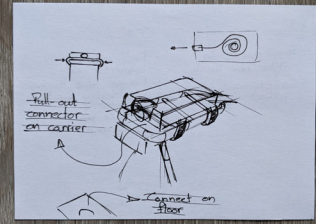 Pull-out
connector
on carrier
Connect on
floor